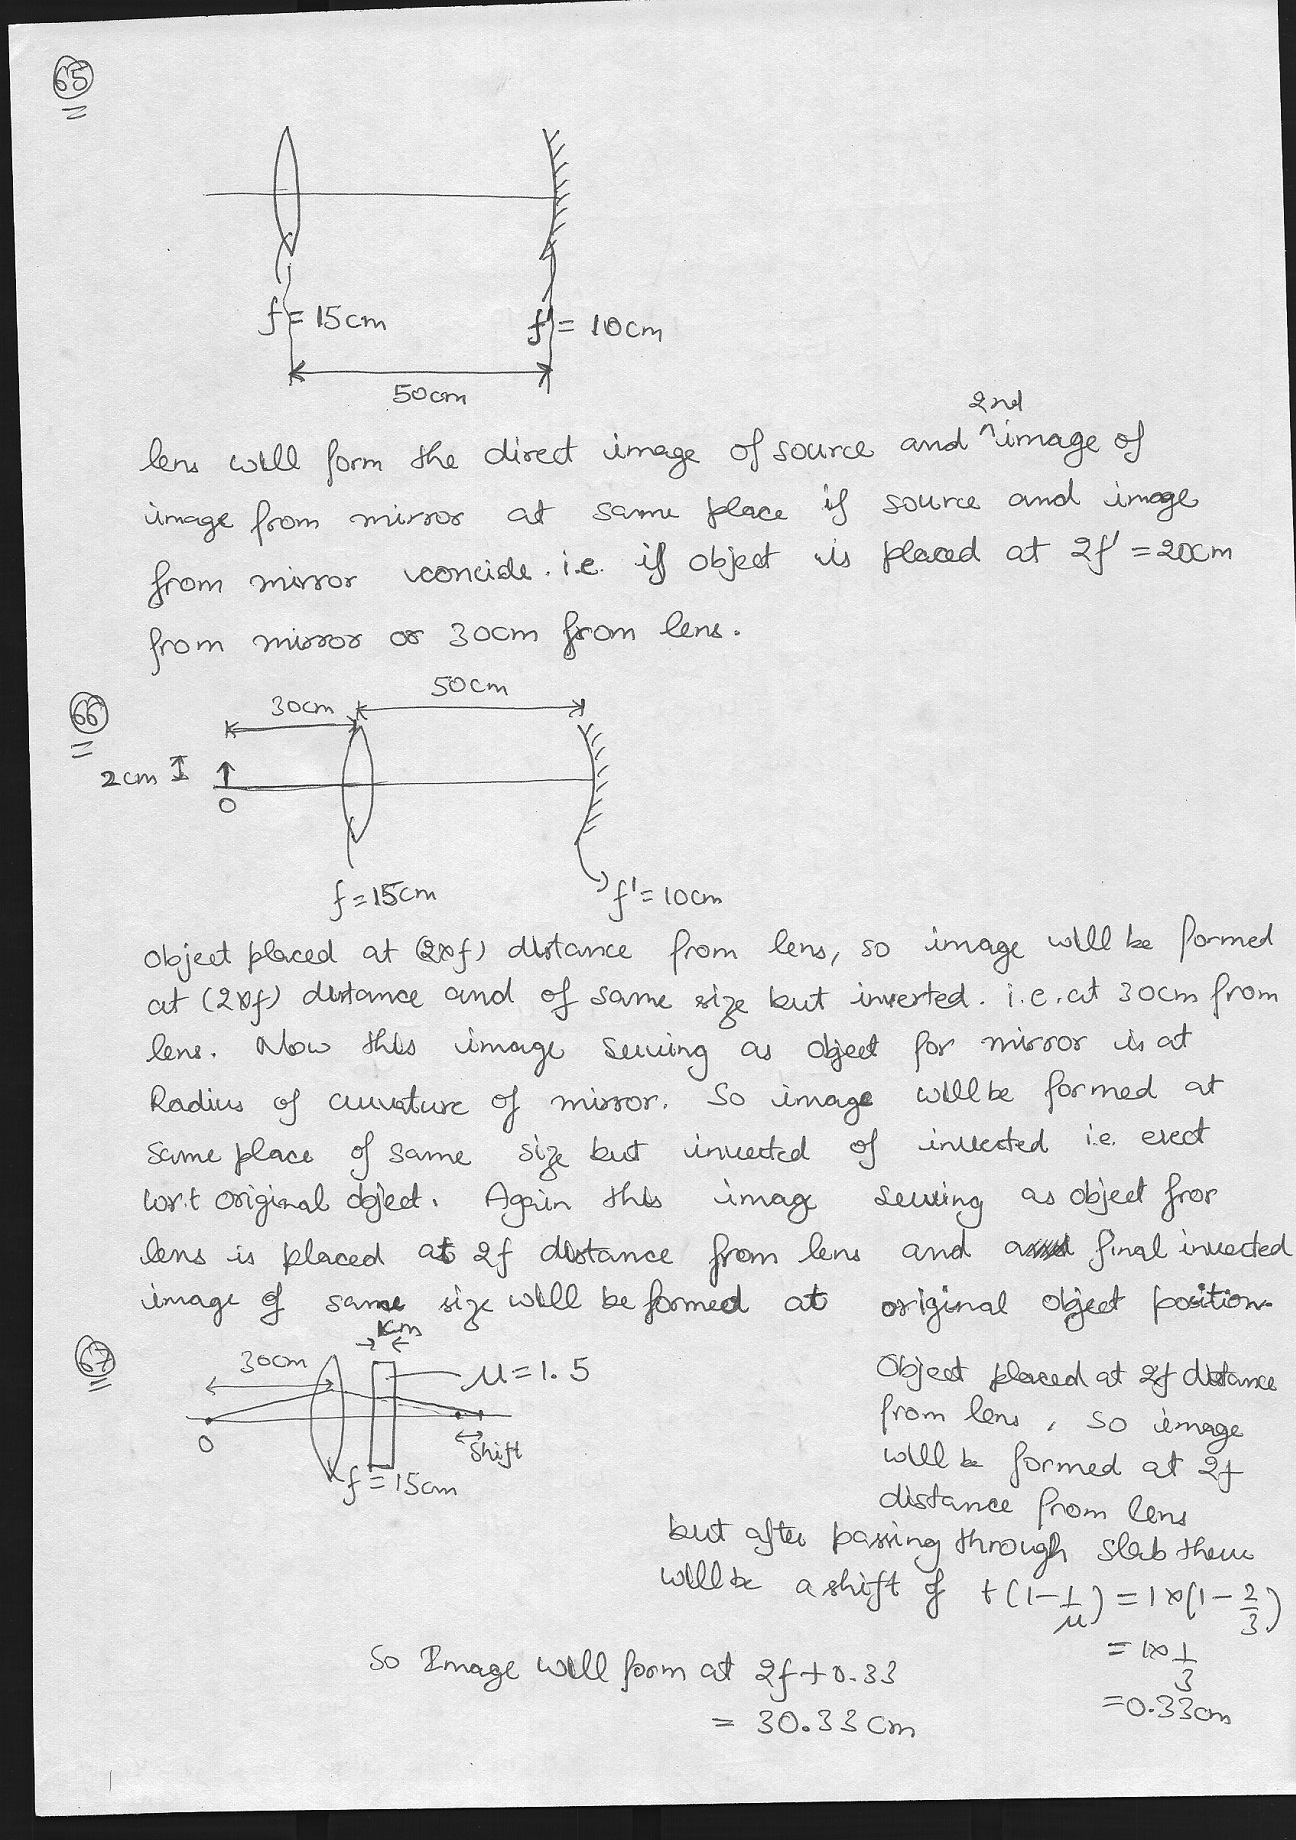 65
f = 15cm
f' = 10cm
50cm
2nd
lens will form the direct image of source and ^image of
image from mirror at same place if source and image
from mirror concide. i.e. if object is placed at 2f' = 20cm
from mirror or 30cm from lens.
66
30cm
50cm
2cm
O
f = 15cm
f' = 10cm
Object placed at (2×f) distance from lens, so image will be formed
at (2×f) distance and of same size but inverted. i.e. at 30cm from
lens. Now this image serving as object for mirror is at
Radius of curvature of mirror. So image will be formed at
same place of same size but inverted of inverted i.e. erect
w.r.t original object. Again this image serving as object fror
lens is placed at 2f distance from lens and final inverted
image of same size will be formed at original object position.
67
1cm
30cm
μ = 1.5
O
shift
f = 15cm
Object placed at 2f distance
from lens, so image
will be formed at 2f
distance from lens
but after passing through slab there
will be a shift of t(1-1/μ) = 1×(1-2/3)
= 1×1/3
= 0.33cm
So Image will form at 2f+0.33
= 30.33cm